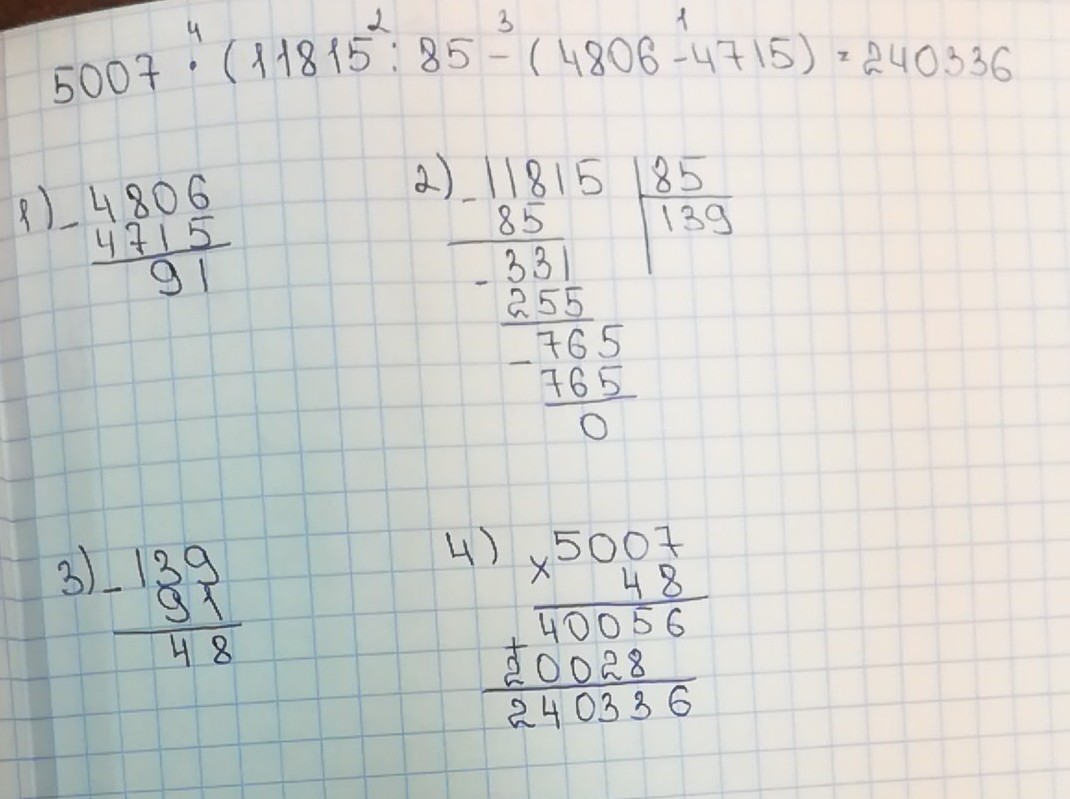 4 2 3 1
5007 · (11815 : 85 - (4806 - 4715) = 240336
1) - 4806
4715
91
2) - 11815 | 85
85 | 139
- 331
255
- 765
765
0
3) - 139
91
48
4) × 5007
48
40056
+
20028
240336